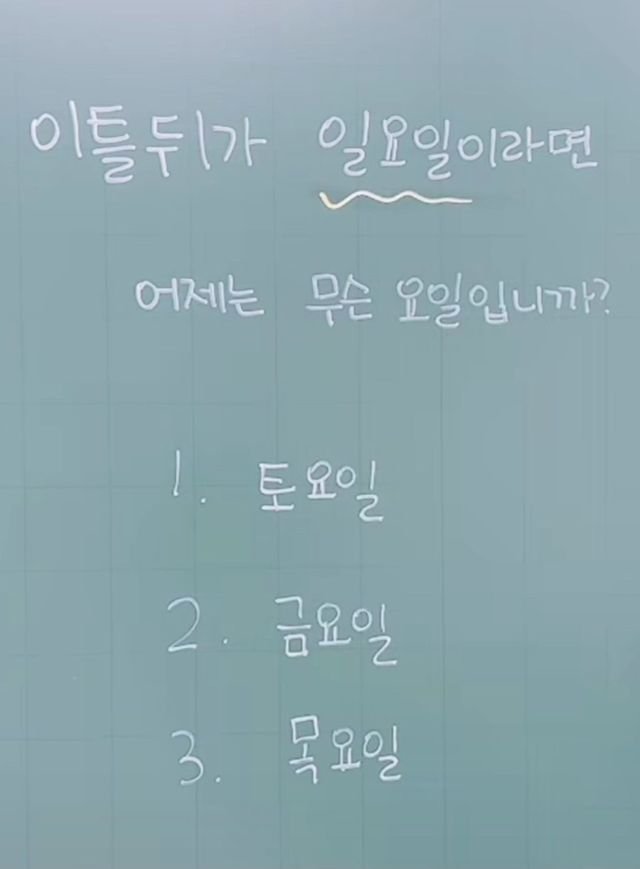 이틀 뒤가 일요일이라면
어제는 무슨 요일입니까?
1. 토요일
2. 금요일
3. 목요일